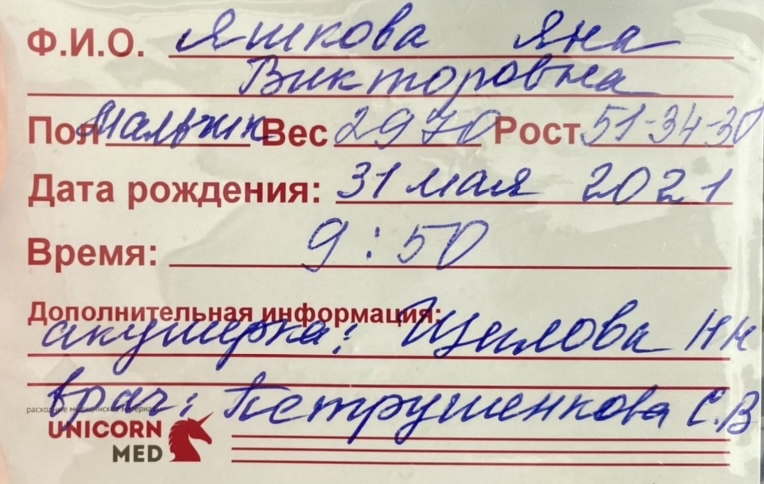 Ф.И.О. Яшкова Яна
Викторовна
Пол Мальчик Вес 2970 Рост 51-34-30
Дата рождения: 31 мая 2021
Время: 9:50
Дополнительная информация:
акушерка: Щилова НН
врач: Петрушенкова С.В
расходные медицинские материалы
UNICORN
MED